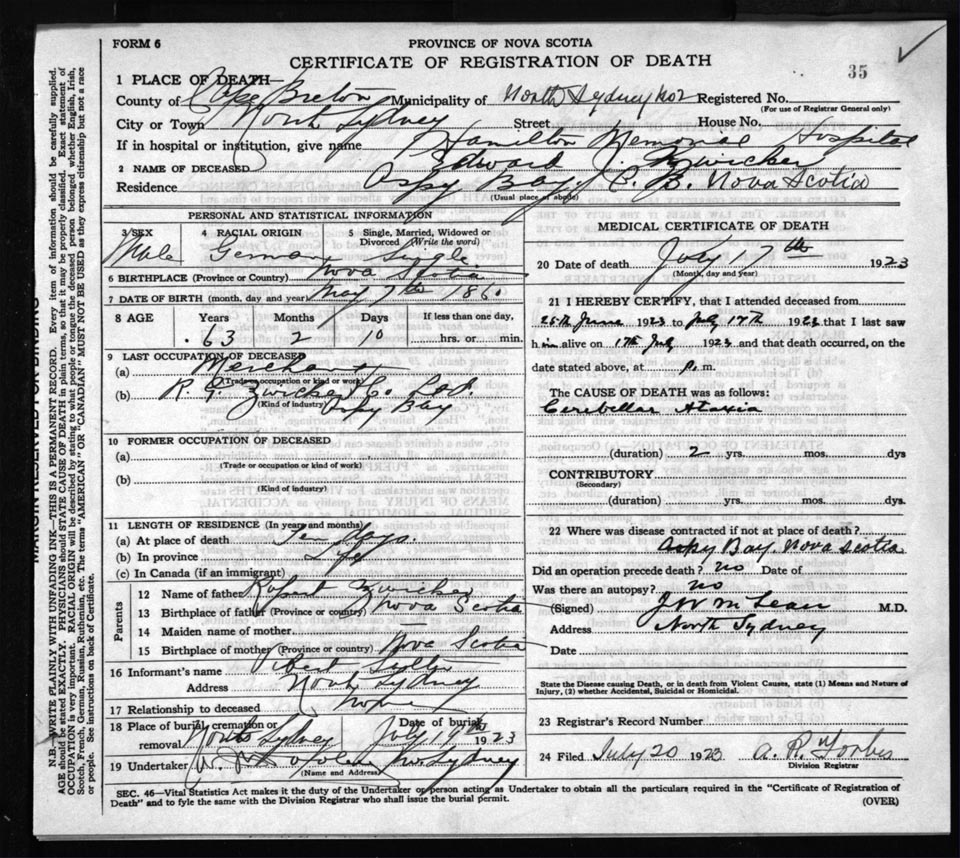 FORM 6
PROVINCE OF NOVA SCOTIA
CERTIFICATE OF REGISTRATION OF DEATH
35
1 PLACE OF DEATH—
County of Cape Breton Municipality of North Sydney No 2 Registered No.
(For use of Registrar General only)
City or Town North Sydney Street House No.
If in hospital or institution, give name Hamilton Memorial Hospital
2 NAME OF DECEASED Edward J. Zwicker
Residence Aspy Bay, C. B. Nova Scotia
(Usual place of abode)
PERSONAL AND STATISTICAL INFORMATION
3 SEX 4 RACIAL ORIGIN 5 Single, Married, Widowed or Divorced (Write the word)
Male German Single
6 BIRTHPLACE (Province or Country) Nova Scotia
7 DATE OF BIRTH (month, day and year) May 7th 1860
8 AGE Years Months Days If less than one day,
63 2 10 hrs. or min.
9 LAST OCCUPATION OF DECEASED
(a) Merchant
(Trade or occupation or kind of work)
(b) R. G. Zwicker Co. Ltd.
(Kind of industry) Aspy Bay
10 FORMER OCCUPATION OF DECEASED
(a)
(Trade or occupation or kind of work)
(b)
(Kind of industry)
11 LENGTH OF RESIDENCE (In years and months)
(a) At place of death Ten days.
(b) In province Life
(c) In Canada (if an immigrant)
Parents
12 Name of father Robert Zwicker
13 Birthplace of father (Province or country) Nova Scotia
14 Maiden name of mother
15 Birthplace of mother (Province or country) Nova Scotia
16 Informant's name
Address North Sydney
17 Relationship to deceased None
18 Place of burial, cremation or removal North Sydney Date of burial July 19th 1923
19 Undertaker No. Sydney
(Name and Address)
MEDICAL CERTIFICATE OF DEATH
20 Date of death July 17th 1923
(Month, day and year)
21 I HEREBY CERTIFY, that I attended deceased from
25th June 1923 to July 17th 1923 that I last saw
him alive on 17th July 1923 and that death occurred, on the
date stated above, at p. m.
The CAUSE OF DEATH was as follows:
Cerebellar Ataxia
(duration) 2 yrs. mos. dys
CONTRIBUTORY
(Secondary)
(duration) yrs. mos. dys.
22 Where was disease contracted if not at place of death?
Aspy Bay, Nova Scotia
Did an operation precede death? no Date of
Was there an autopsy? no
(Signed) J W McLean M.D.
Address North Sydney
Date
State the Disease causing Death, or in death from Violent Causes, state (1) Means and Nature of
Injury, (2) whether Accidental, Suicidal or Homicidal.
23 Registrar's Record Number
24 Filed July 20 1923 A. R. Forbes
Division Registrar
SEC. 46—Vital Statistics Act makes it the duty of the Undertaker or person acting as Undertaker to obtain all the particulars required in the "Certificate of Registration of
Death" and to fyle the same with the Division Registrar who shall issue the burial permit.
(OVER)
MARGIN RESERVED FOR BINDING
N.B.—WRITE PLAINLY WITH UNFADING INK—THIS IS A PERMANENT RECORD. Every item of information should be carefully supplied.
AGE should be stated EXACTLY. PHYSICIANS should STATE CAUSE OF DEATH in plain terms, so that it may be properly classified. Exact statement of
OCCUPATION is very important. RACIAL ORIGIN will be described by stating to what people or tongue the deceased person belonged whether English, Irish,
Scotch, French, German, Russian, Ruthenian, etc. The terms "AMERICAN" OR "CANADIAN" MUST NOT BE USED as they express citizenship but not a race
or people. See instructions on back of Certificate.